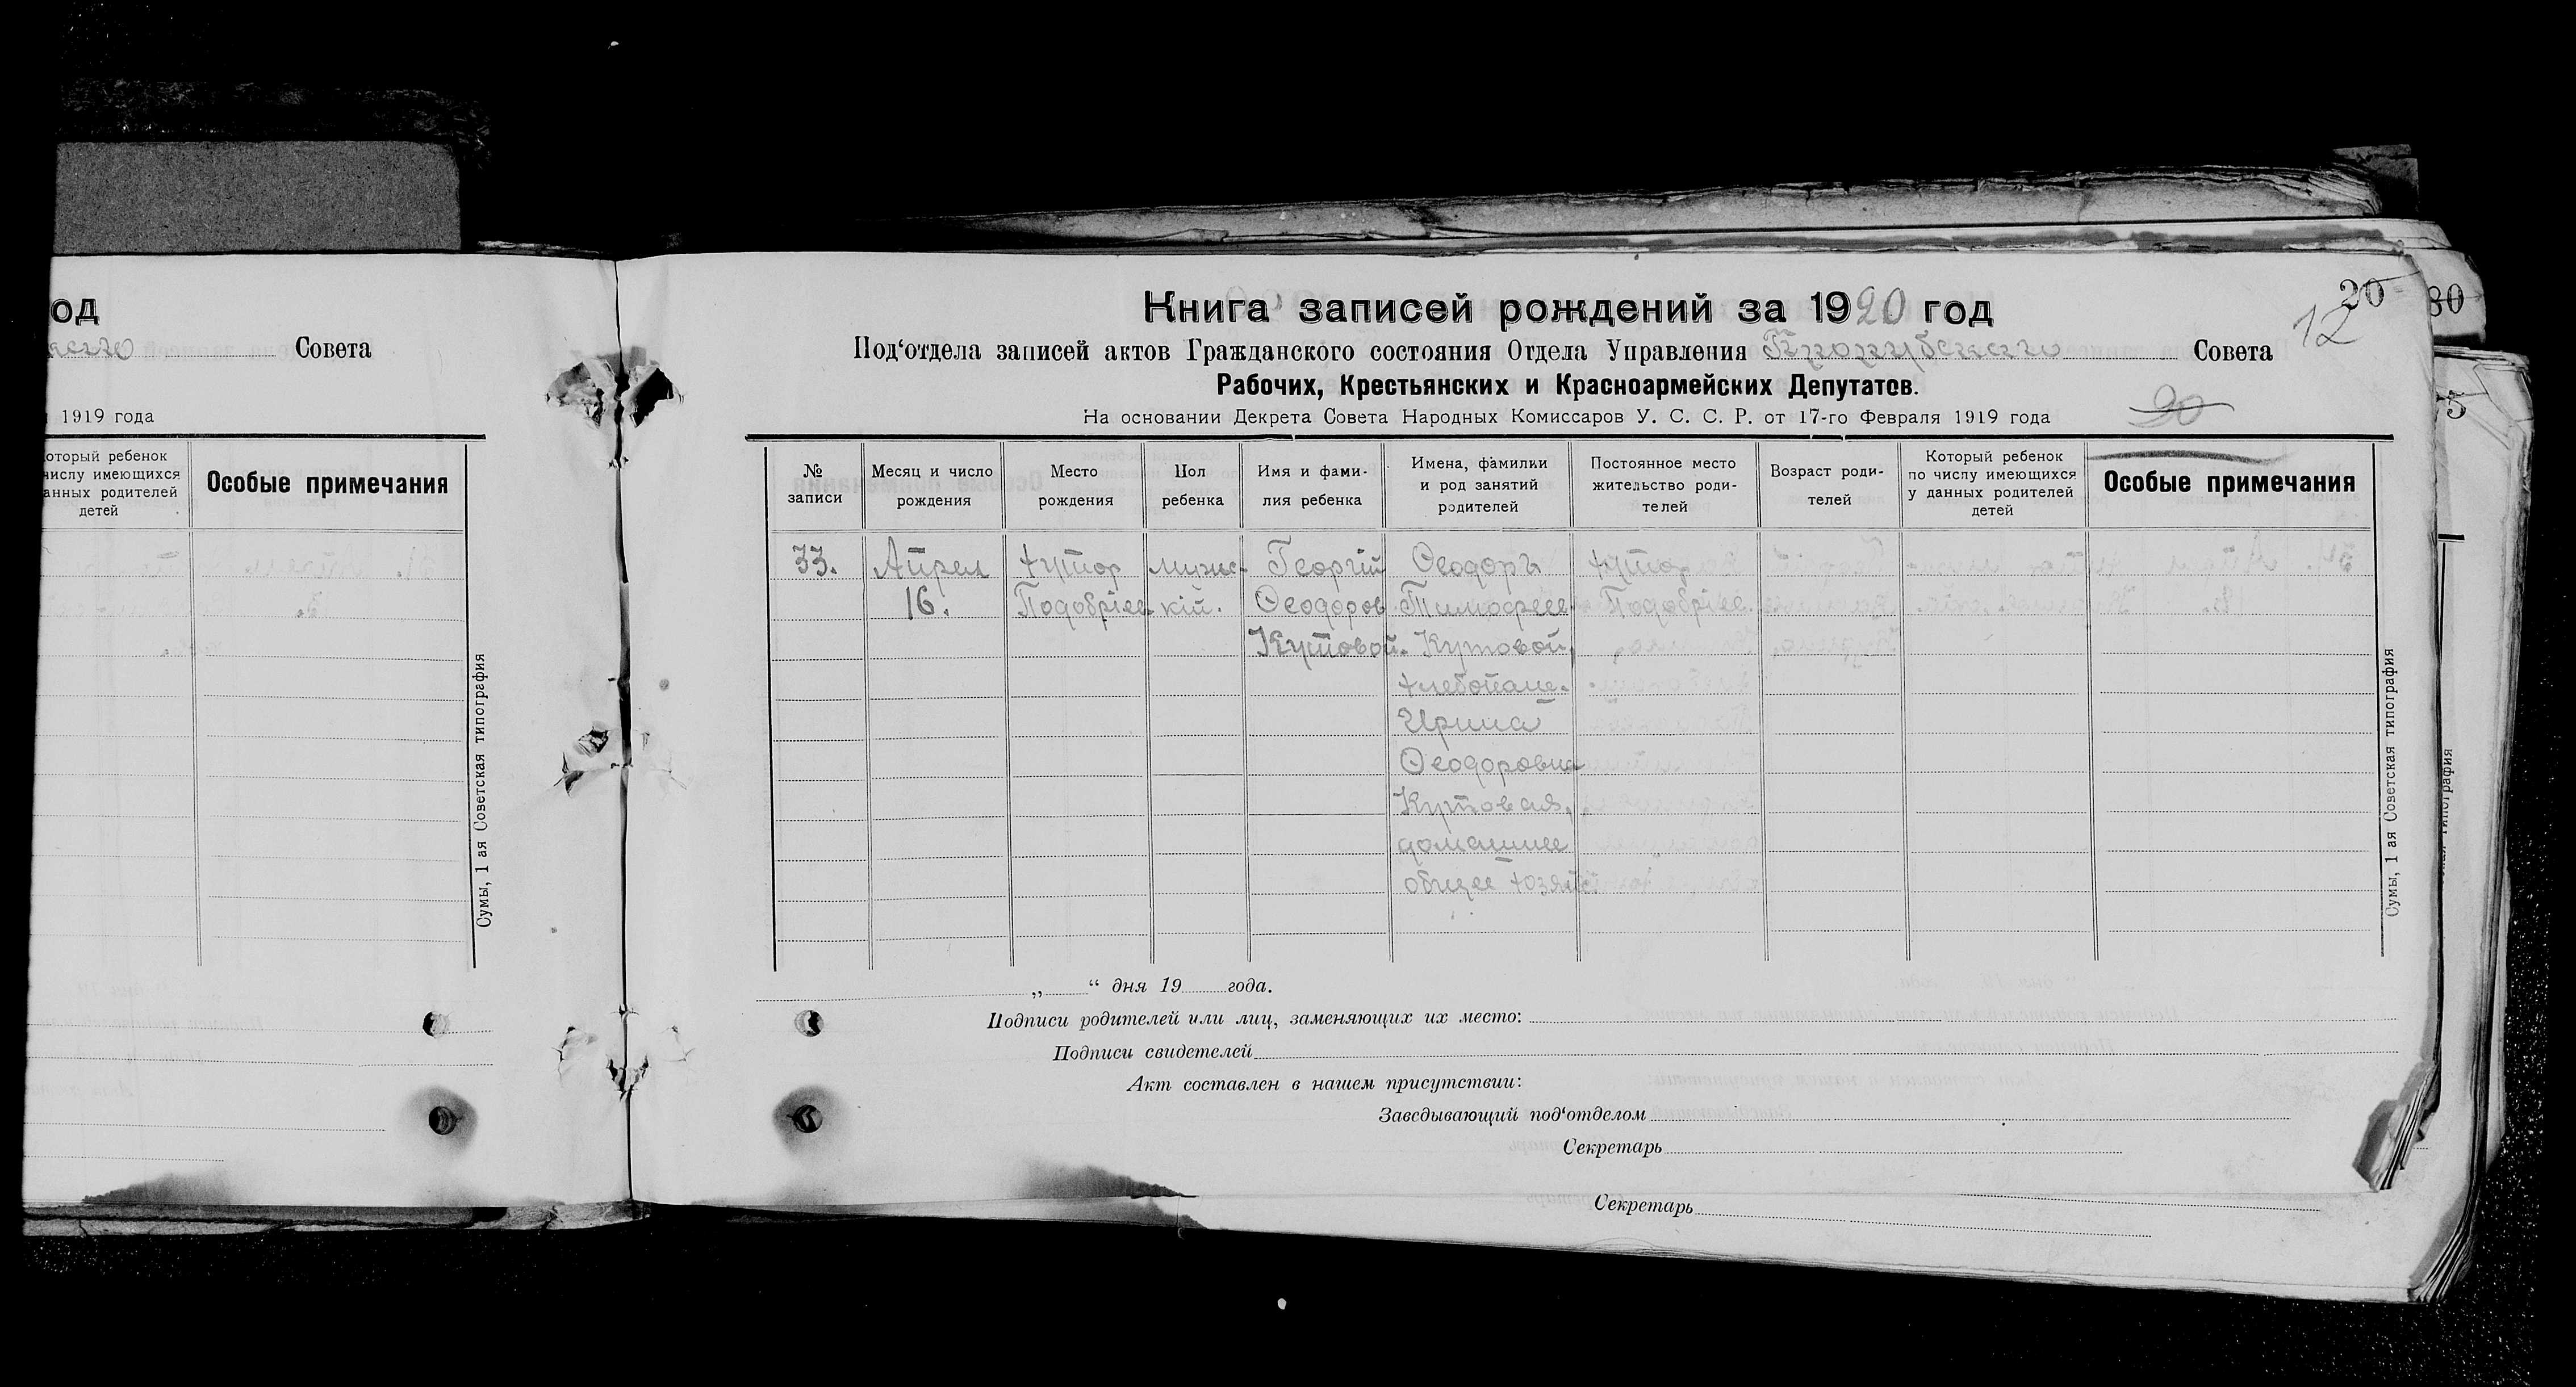 од
Совета
1919 года
оторый ребенок
числу имеющихся
анных родителей
детей
Особые примечания
Сумы, 1 ая Советская типография
20
30
12
Книга записей рождений за 1920 год
Под‘отдела записей актов Гражданского состояния Отдела Управления Совета
Рабочих, Крестьянских и Красноармейских Депутатов.
На основании Декрета Совета Народных Комиссаров У. С. С. Р. от 17-го Февраля 1919 года
20
№ записи
Месяц и число рождения
Место рождения
Пол ребенка
Имя и фами-
лия ребенка
Имена, фамилии
и род занятий
родителей
Постоянное место
жительство роди-
телей
Возраст роди-
телей
Который ребенок
по числу имеющихся
у данных родителей
детей
Особые примечания
33. Апрел хутор мужс- Георгій Ѳеодоръ хутор
16. Подобріев. кій. Ѳеодоров. Тимофеев. Подобріев.
Кутовой. Кутовой,
хлебопаш.
Ирина
Ѳеодоровна
Кутовая,
домашнее
общее хозяйс
Сумы, 1 ая Советская типография
„ “ дня 19 года.
Подписи родителей или лиц, заменяющих их место:
Подписи свидетелей
Акт составлен в нашем присутствии:
Заведывающий под‘отделом
Секретарь
Секретарь